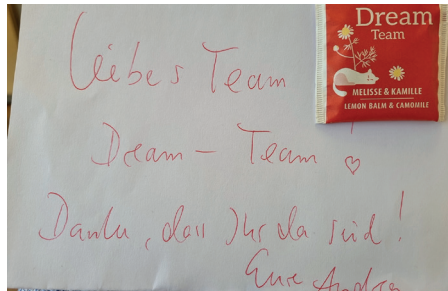 Dream
Team
MELISSE & KAMILLE
LEMON BALM & CAMOMILE
Liebes Team
Dream – Team !
Danke, dass Ihr da seid !
Eure